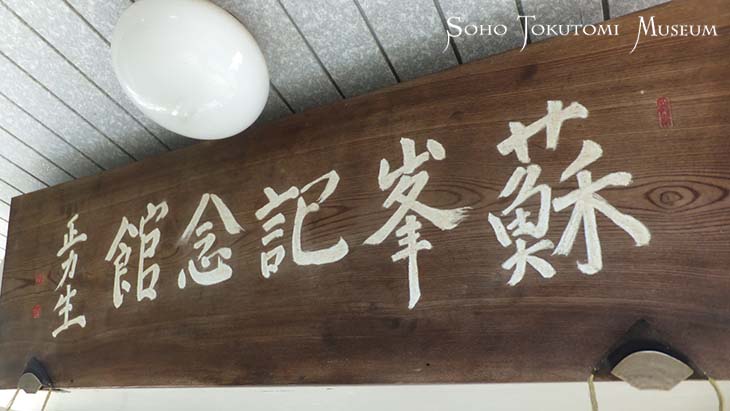 Soho Tokutomi Museum
蘇峯記念館
正力生